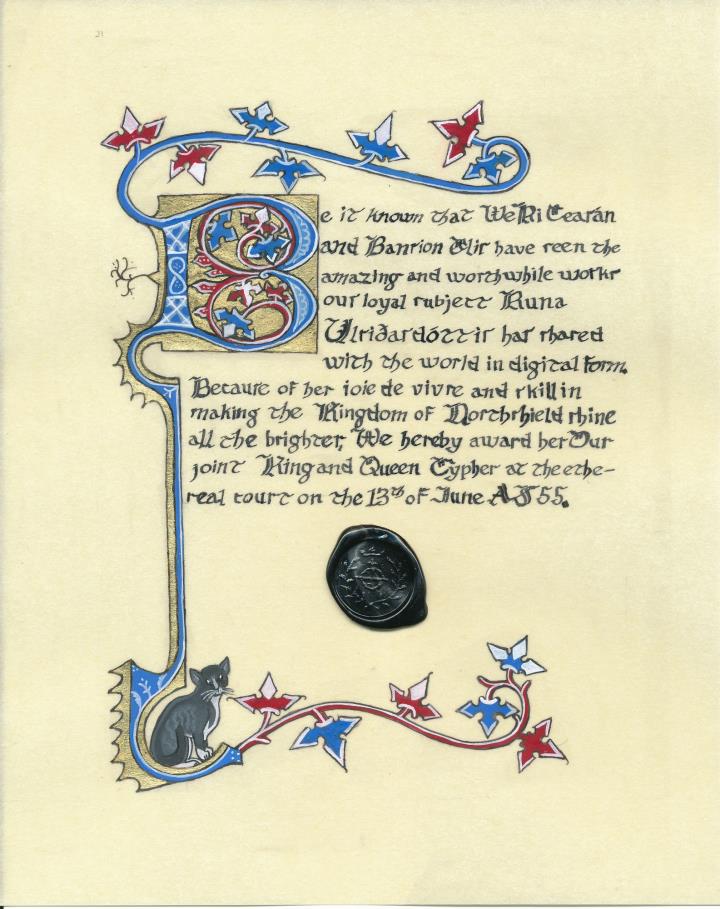 Be it known that We Ri Cearán
and Banrion Elis have seen the
amazing and worthwhile works
our loyal subject Runa
Ulfriðardóttir has shared
with the world in digital form.
Because of her joie de vivre and skill in
making the Kingdom of Northshield shine
all the brighter, We hereby award her Our
joint King and Queen Cypher at the ethe-
real court on the 13th of June AS 55.